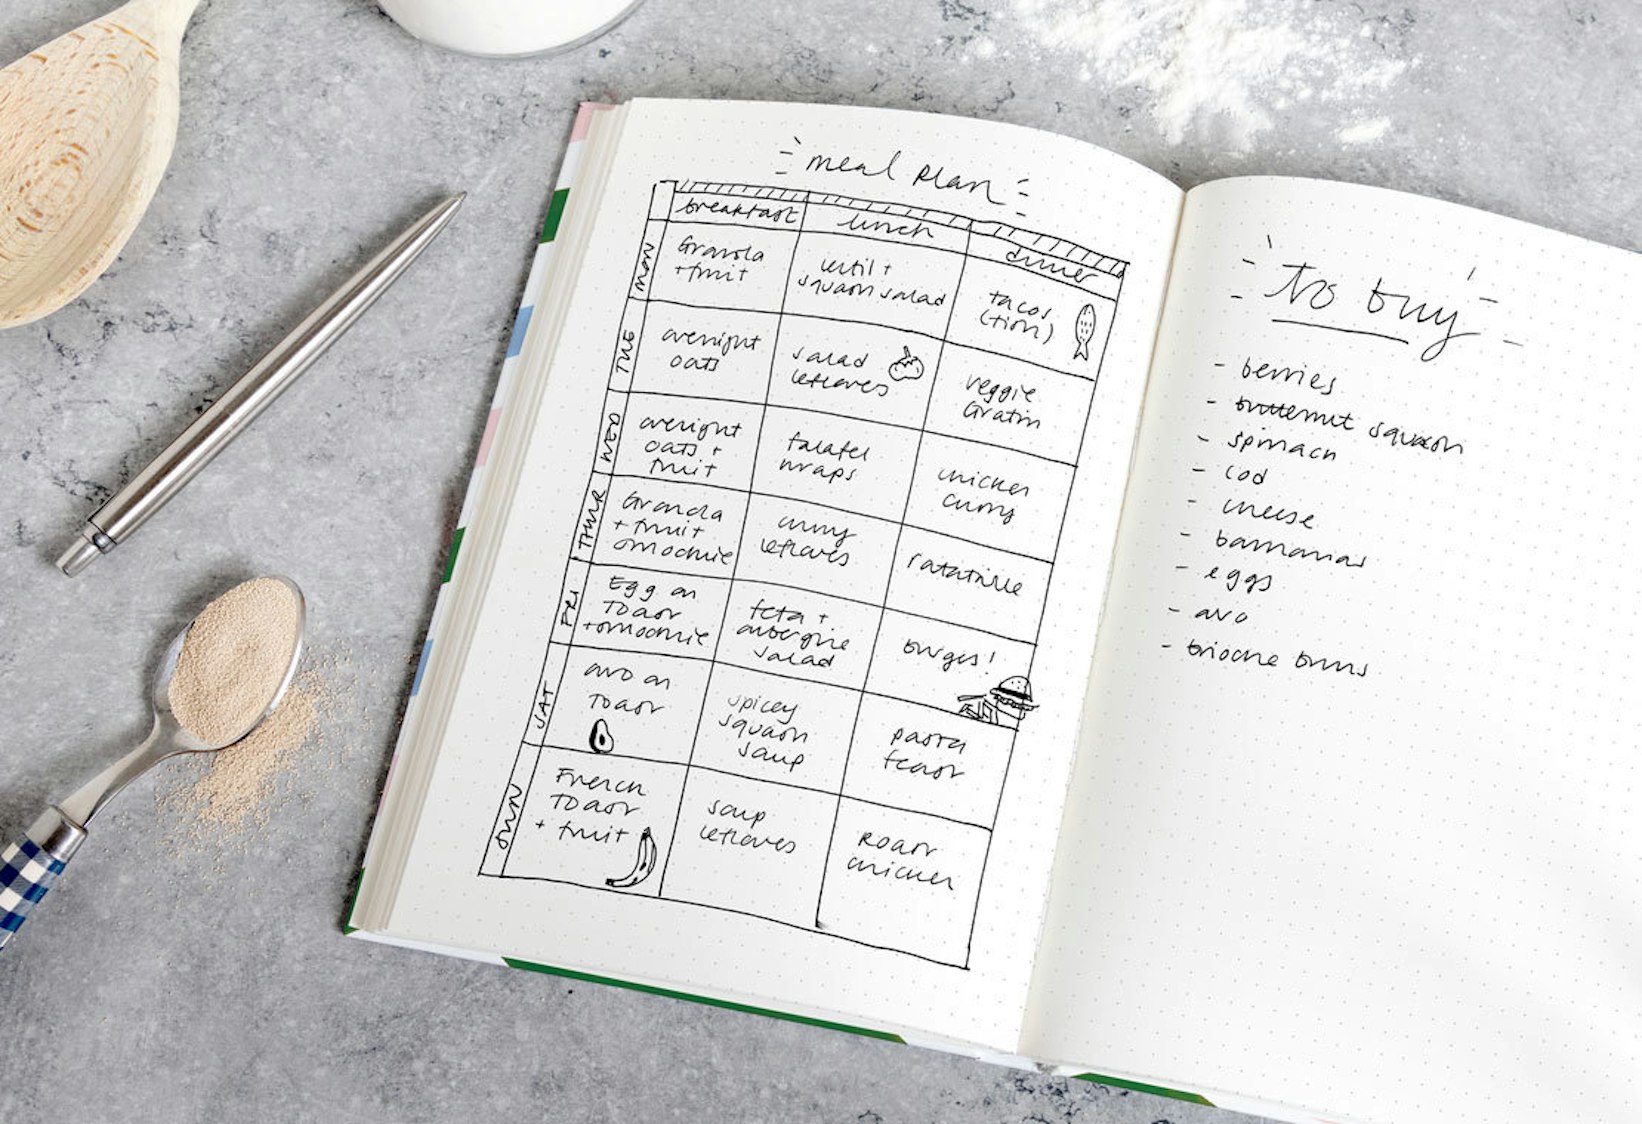 meal plan
breakfast
lunch
dinner
MON
Granola
+ fruit
lentil +
squash salad
tacos
(fish)
TUE
overnight
oats
salad
leftovers
veggie
Gratin
WED
overnight
oats +
fruit
falafel
wraps
chicken
curry
THUR
Granola
+ fruit
smoothie
curry
leftovers
ratatouille
FRI
Egg on
Toast
+ smoothie
feta +
aubergine
salad
burgers!
SAT
avo on
Toast
spicey
squash
soup
pasta
feast
SUN
French
Toast
+ fruit
soup
leftovers
Roast
chicken
to buy
- berries
- butternut squash
- spinach
- cod
- cheese
- bannanas
- eggs
- avo
- brioche buns